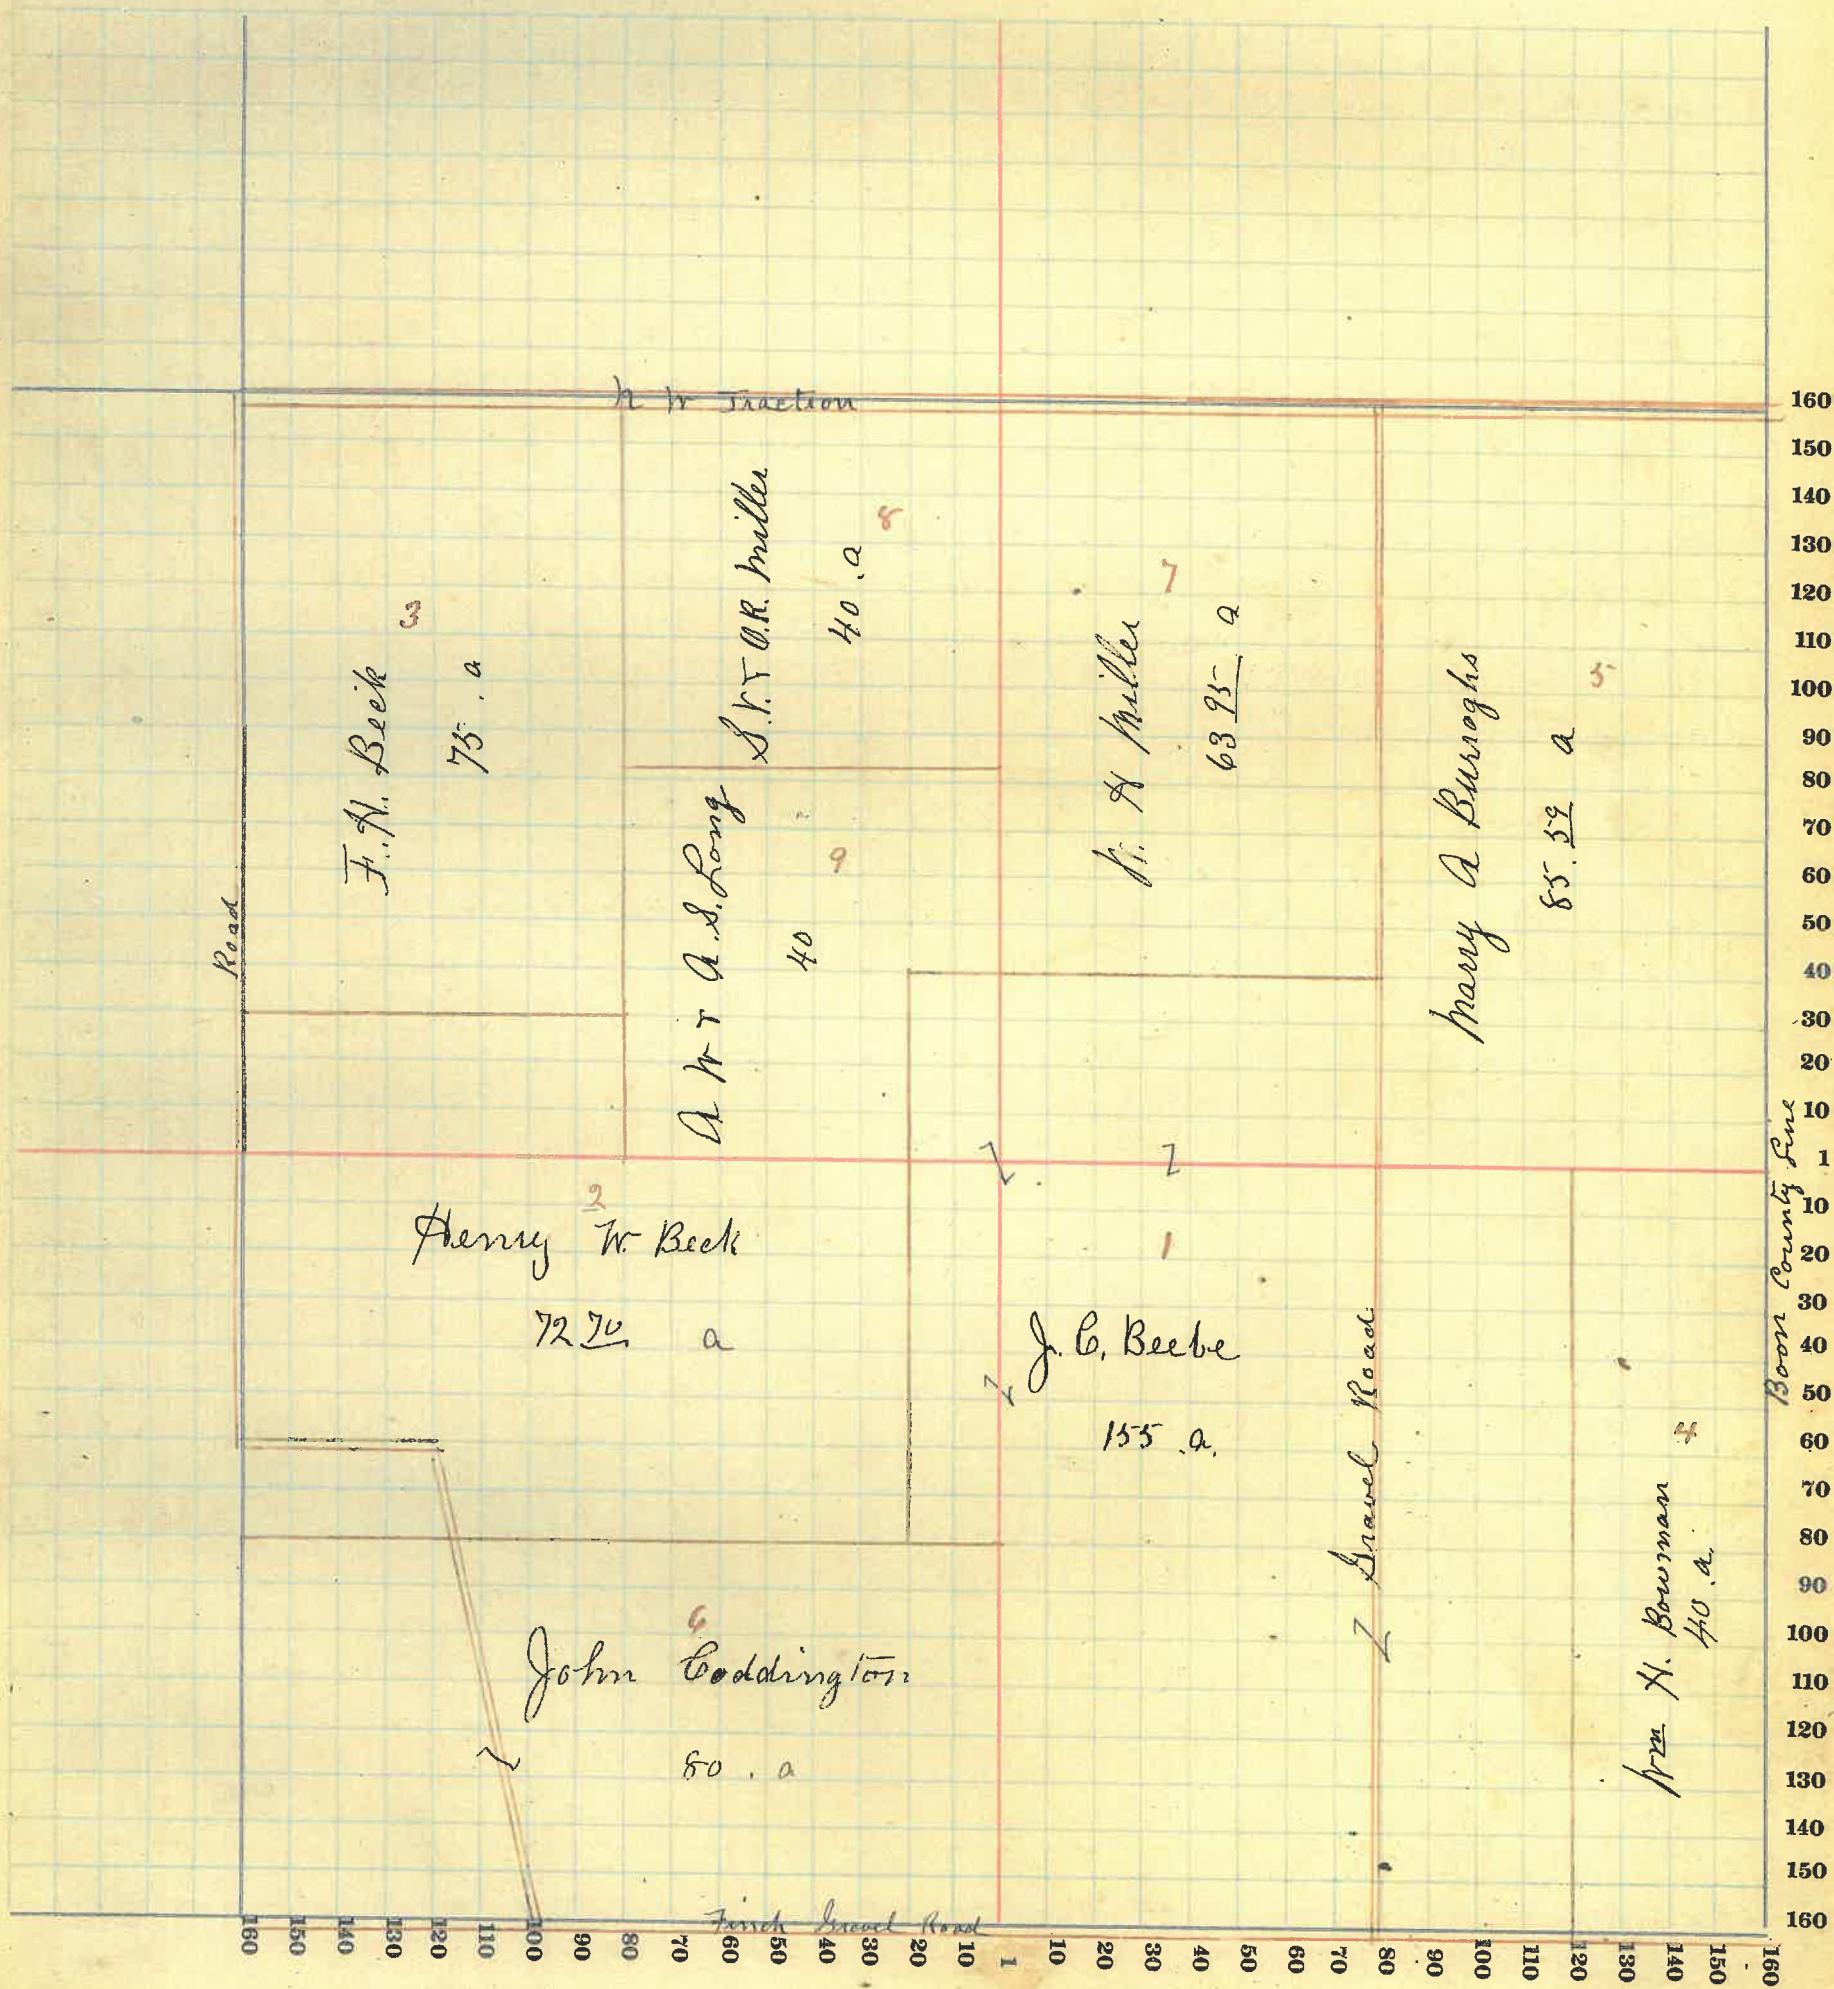 N W Traction
3
F. H. Beck
75 . a
Road
8
S.V. & O.R. Miller
40 . a
9
A W & A. S. Long
40
7
N. H Miller
63 95 a
5
Marry A Burroghs
85. 59 a
2
Henry W. Beck
72 70 a
1
J. C. Beebe
155 . a.
Gravel Road
Boon County Line
4
Wm H. Bowman
40 . a.
6
John Coddington
80 . a
Finch Gravel Road
160
150
140
130
120
110
100
90
80
70
60
50
40
30
20
10
1
10
20
30
40
50
60
70
80
90
100
110
120
130
140
150
160
160 150 140 130 120 110 100 90 80 70 60 50 40 30 20 10 1 10 20 30 40 50 60 70 80 90 100 110 120 130 140 150 160